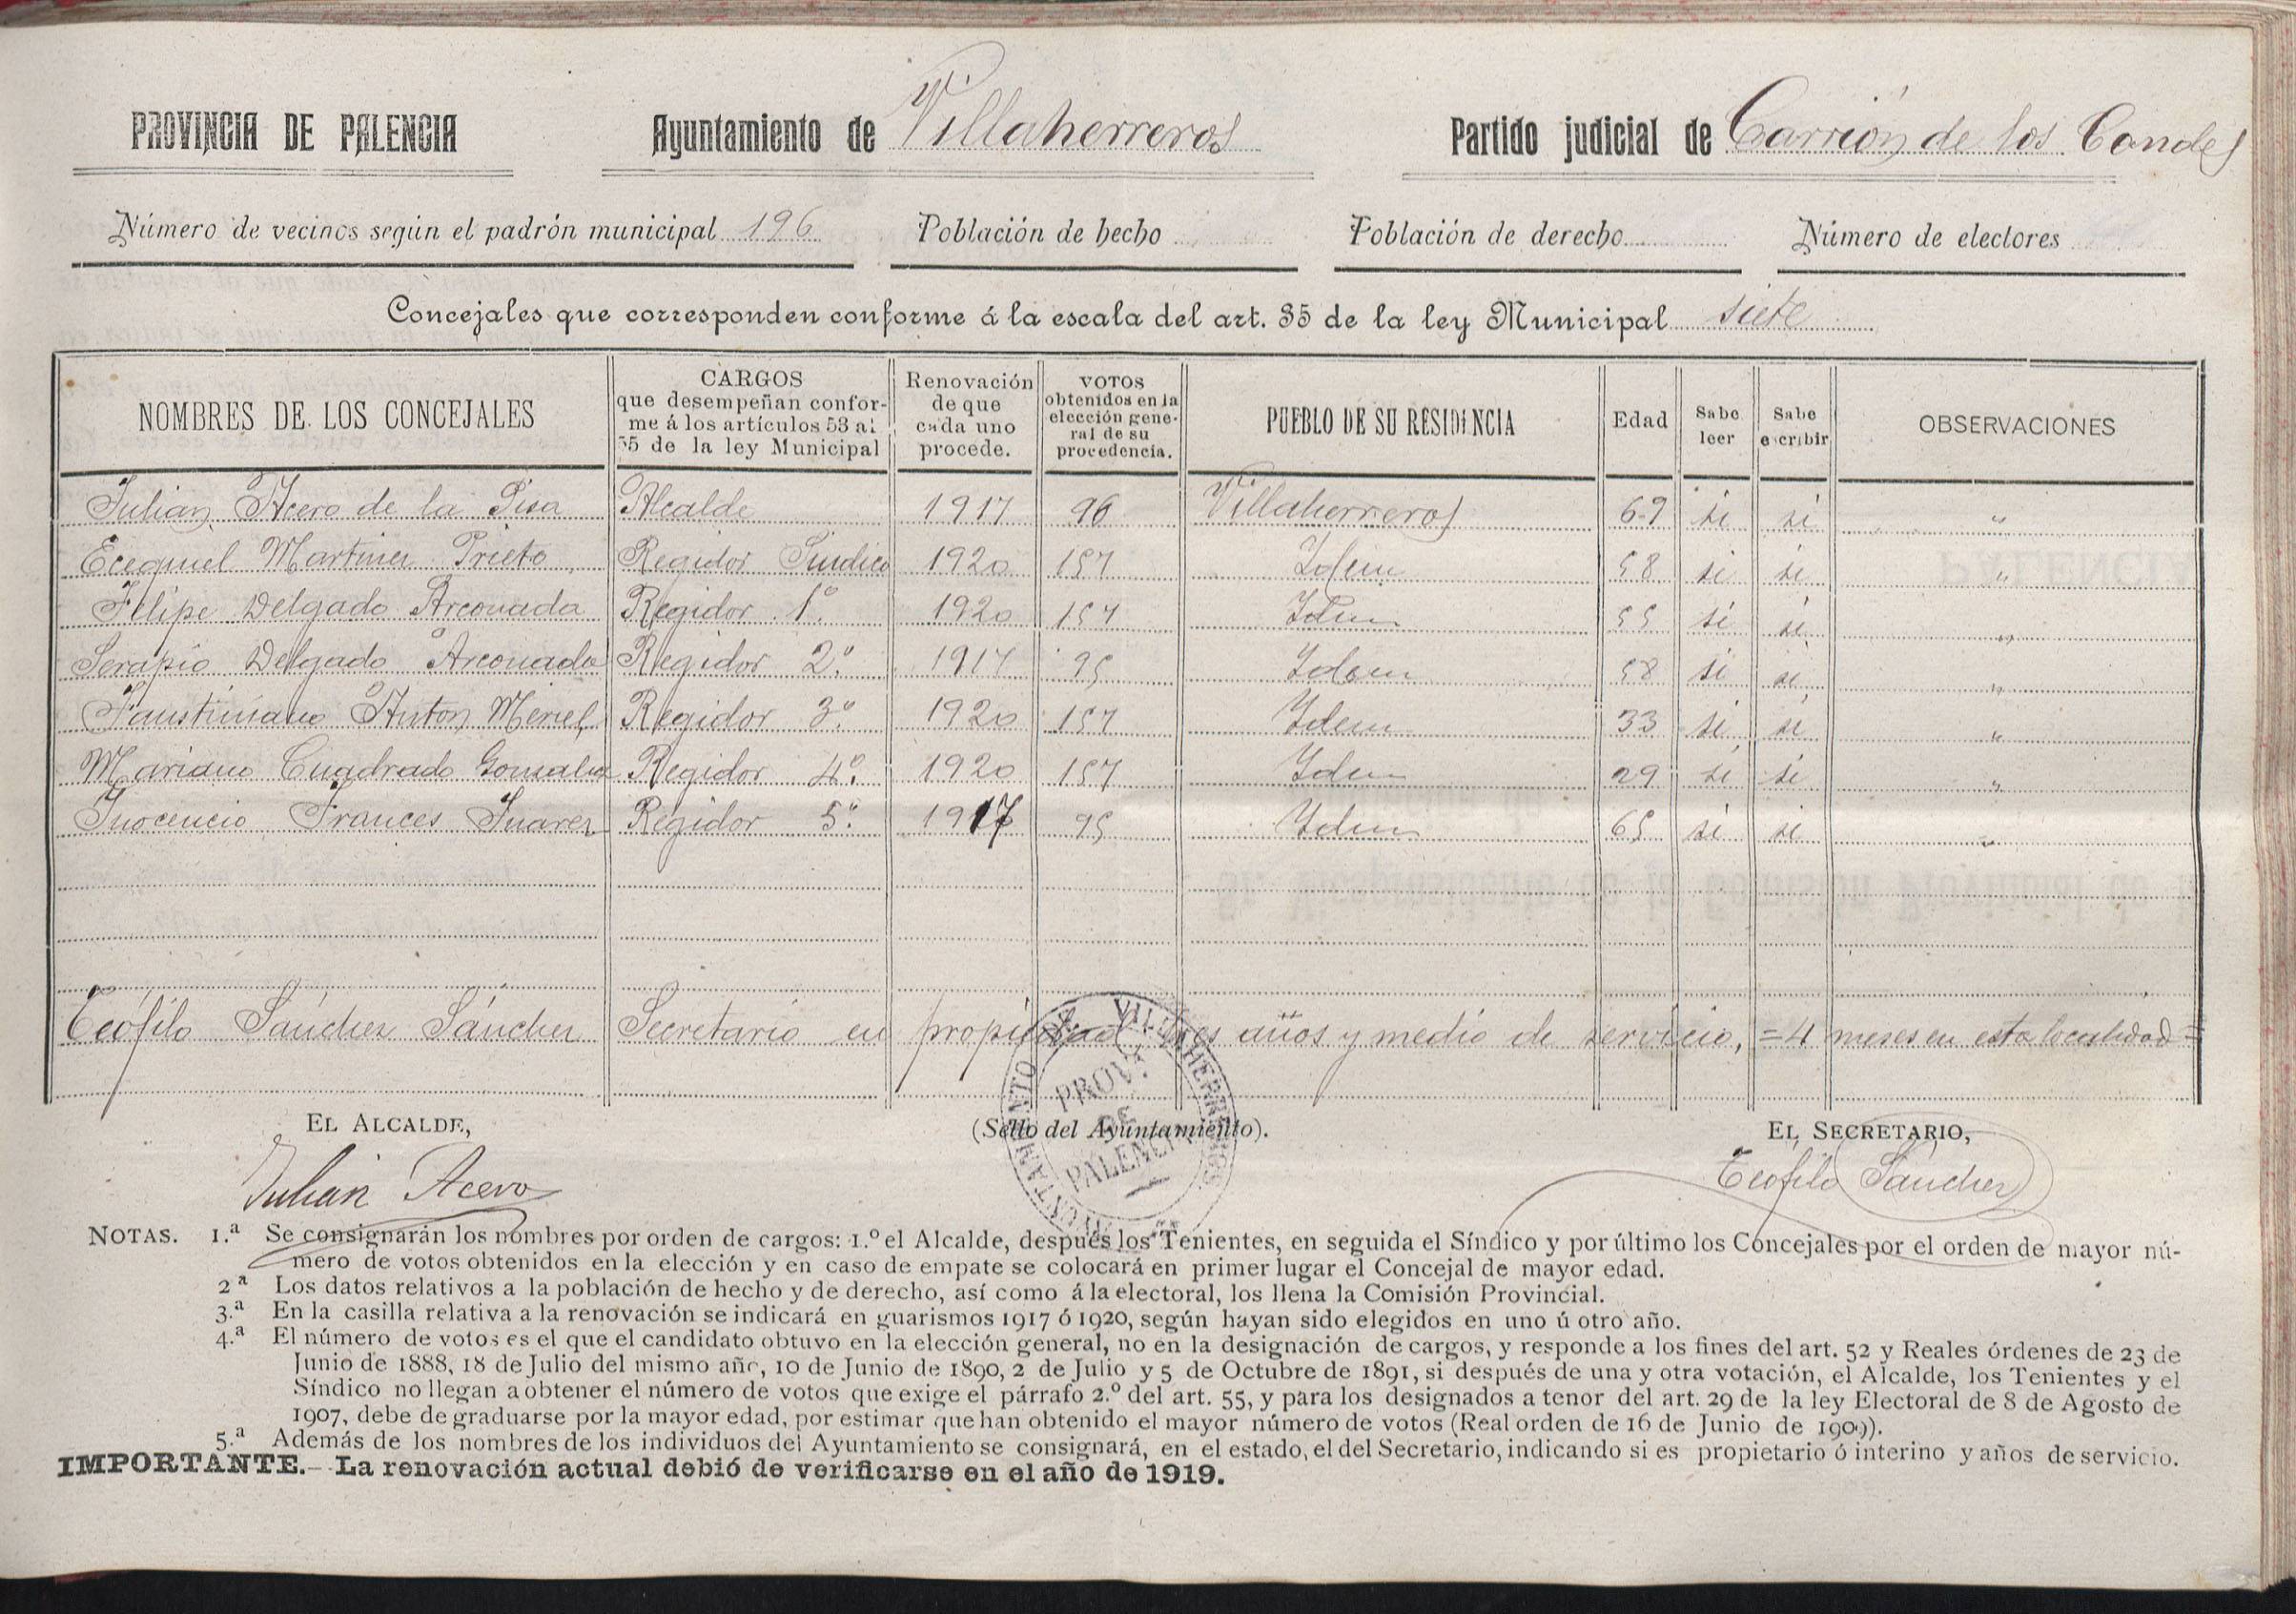 PROVINCIA DE PALENCIA Ayuntamiento de Villaherreros Partido judicial de Carrión de los Condes
Número de vecinos según el padrón municipal 196 Población de hecho Población de derecho Número de electores
Concejales que corresponden conforme á la escala del art. 35 de la ley Municipal siete
NOMBRES DE LOS CONCEJALES CARGOS que desempeñan conforme á los artículos 53 al 55 de la ley Municipal Renovación de que cada uno procede. VOTOS obtenidos en la elección general de su procedencia. PUEBLO DE SU RESIDENCIA Edad Sabe leer Sabe escribir OBSERVACIONES
Julian Acero de la Pisa Alcalde 1917 96 Villaherreros 69 si si "
Ecequiel Martinez Prieto Regidor Sindico 1920 157 Idem 58 si si "
Felipe Delgado Arconada Regidor 1º. 1920 157 Idem 55 si si "
Serapio Delgado Arconada Regidor 2º. 1917 95 Idem 58 si si "
Faustiniano Anton Meriel Regidor 3º. 1920 157 Idem 33 si si "
Mariano Cuadrado Gonzalez Regidor 4º. 1920 157 Idem 29 si si "
Inocencio Frances Juarez Regidor 5º. 1917 95 Idem 65 si si "
Teófilo Sánchez Sánchez Secretario en propiedad tres años y medio de servicio, =4 meses en esta localidad=
EL ALCALDE, (Sello del Ayuntamiento). EL SECRETARIO,
AYUNTAMIENTO DE VILLAHERREROS PROV.ª DE PALENCIA
Julián Acero Teófilo Sánchez
NOTAS. 1.ª Se consignarán los nombres por orden de cargos: 1.º el Alcalde, después los Tenientes, en seguida el Síndico y por último los Concejales por el orden de mayor nú-
mero de votos obtenidos en la elección y en caso de empate se colocará en primer lugar el Concejal de mayor edad.
2ª Los datos relativos a la población de hecho y de derecho, así como á la electoral, los llena la Comisión Provincial.
3.ª En la casilla relativa a la renovación se indicará en guarismos 1917 ó 1920, según hayan sido elegidos en uno ú otro año.
4.ª El número de votos es el que el candidato obtuvo en la elección general, no en la designación de cargos, y responde a los fines del art. 52 y Reales órdenes de 23 de
Junio de 1888, 18 de Julio del mismo año, 10 de Junio de 1890, 2 de Julio y 5 de Octubre de 1891, si después de una y otra votación, el Alcalde, los Tenientes y el
Síndico no llegan a obtener el número de votos que exige el párrafo 2.º del art. 55, y para los designados a tenor del art. 29 de la ley Electoral de 8 de Agosto de
1907, debe de graduarse por la mayor edad, por estimar que han obtenido el mayor número de votos (Real orden de 16 de Junio de 1909).
5.ª Además de los nombres de los individuos del Ayuntamiento se consignará, en el estado, el del Secretario, indicando si es propietario ó interino y años de servicio.
IMPORTANTE.- La renovación actual debió de verificarse en el año de 1919.